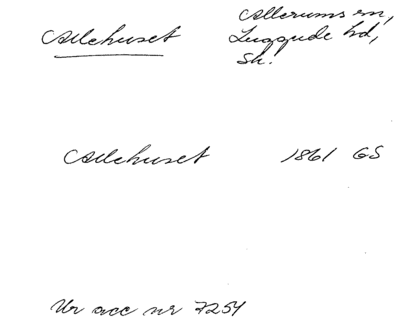 Allehuset
Allerums sn,
Luggude hd,
Sk.
Allehuset 1861 GS
Ur acc nr 7254